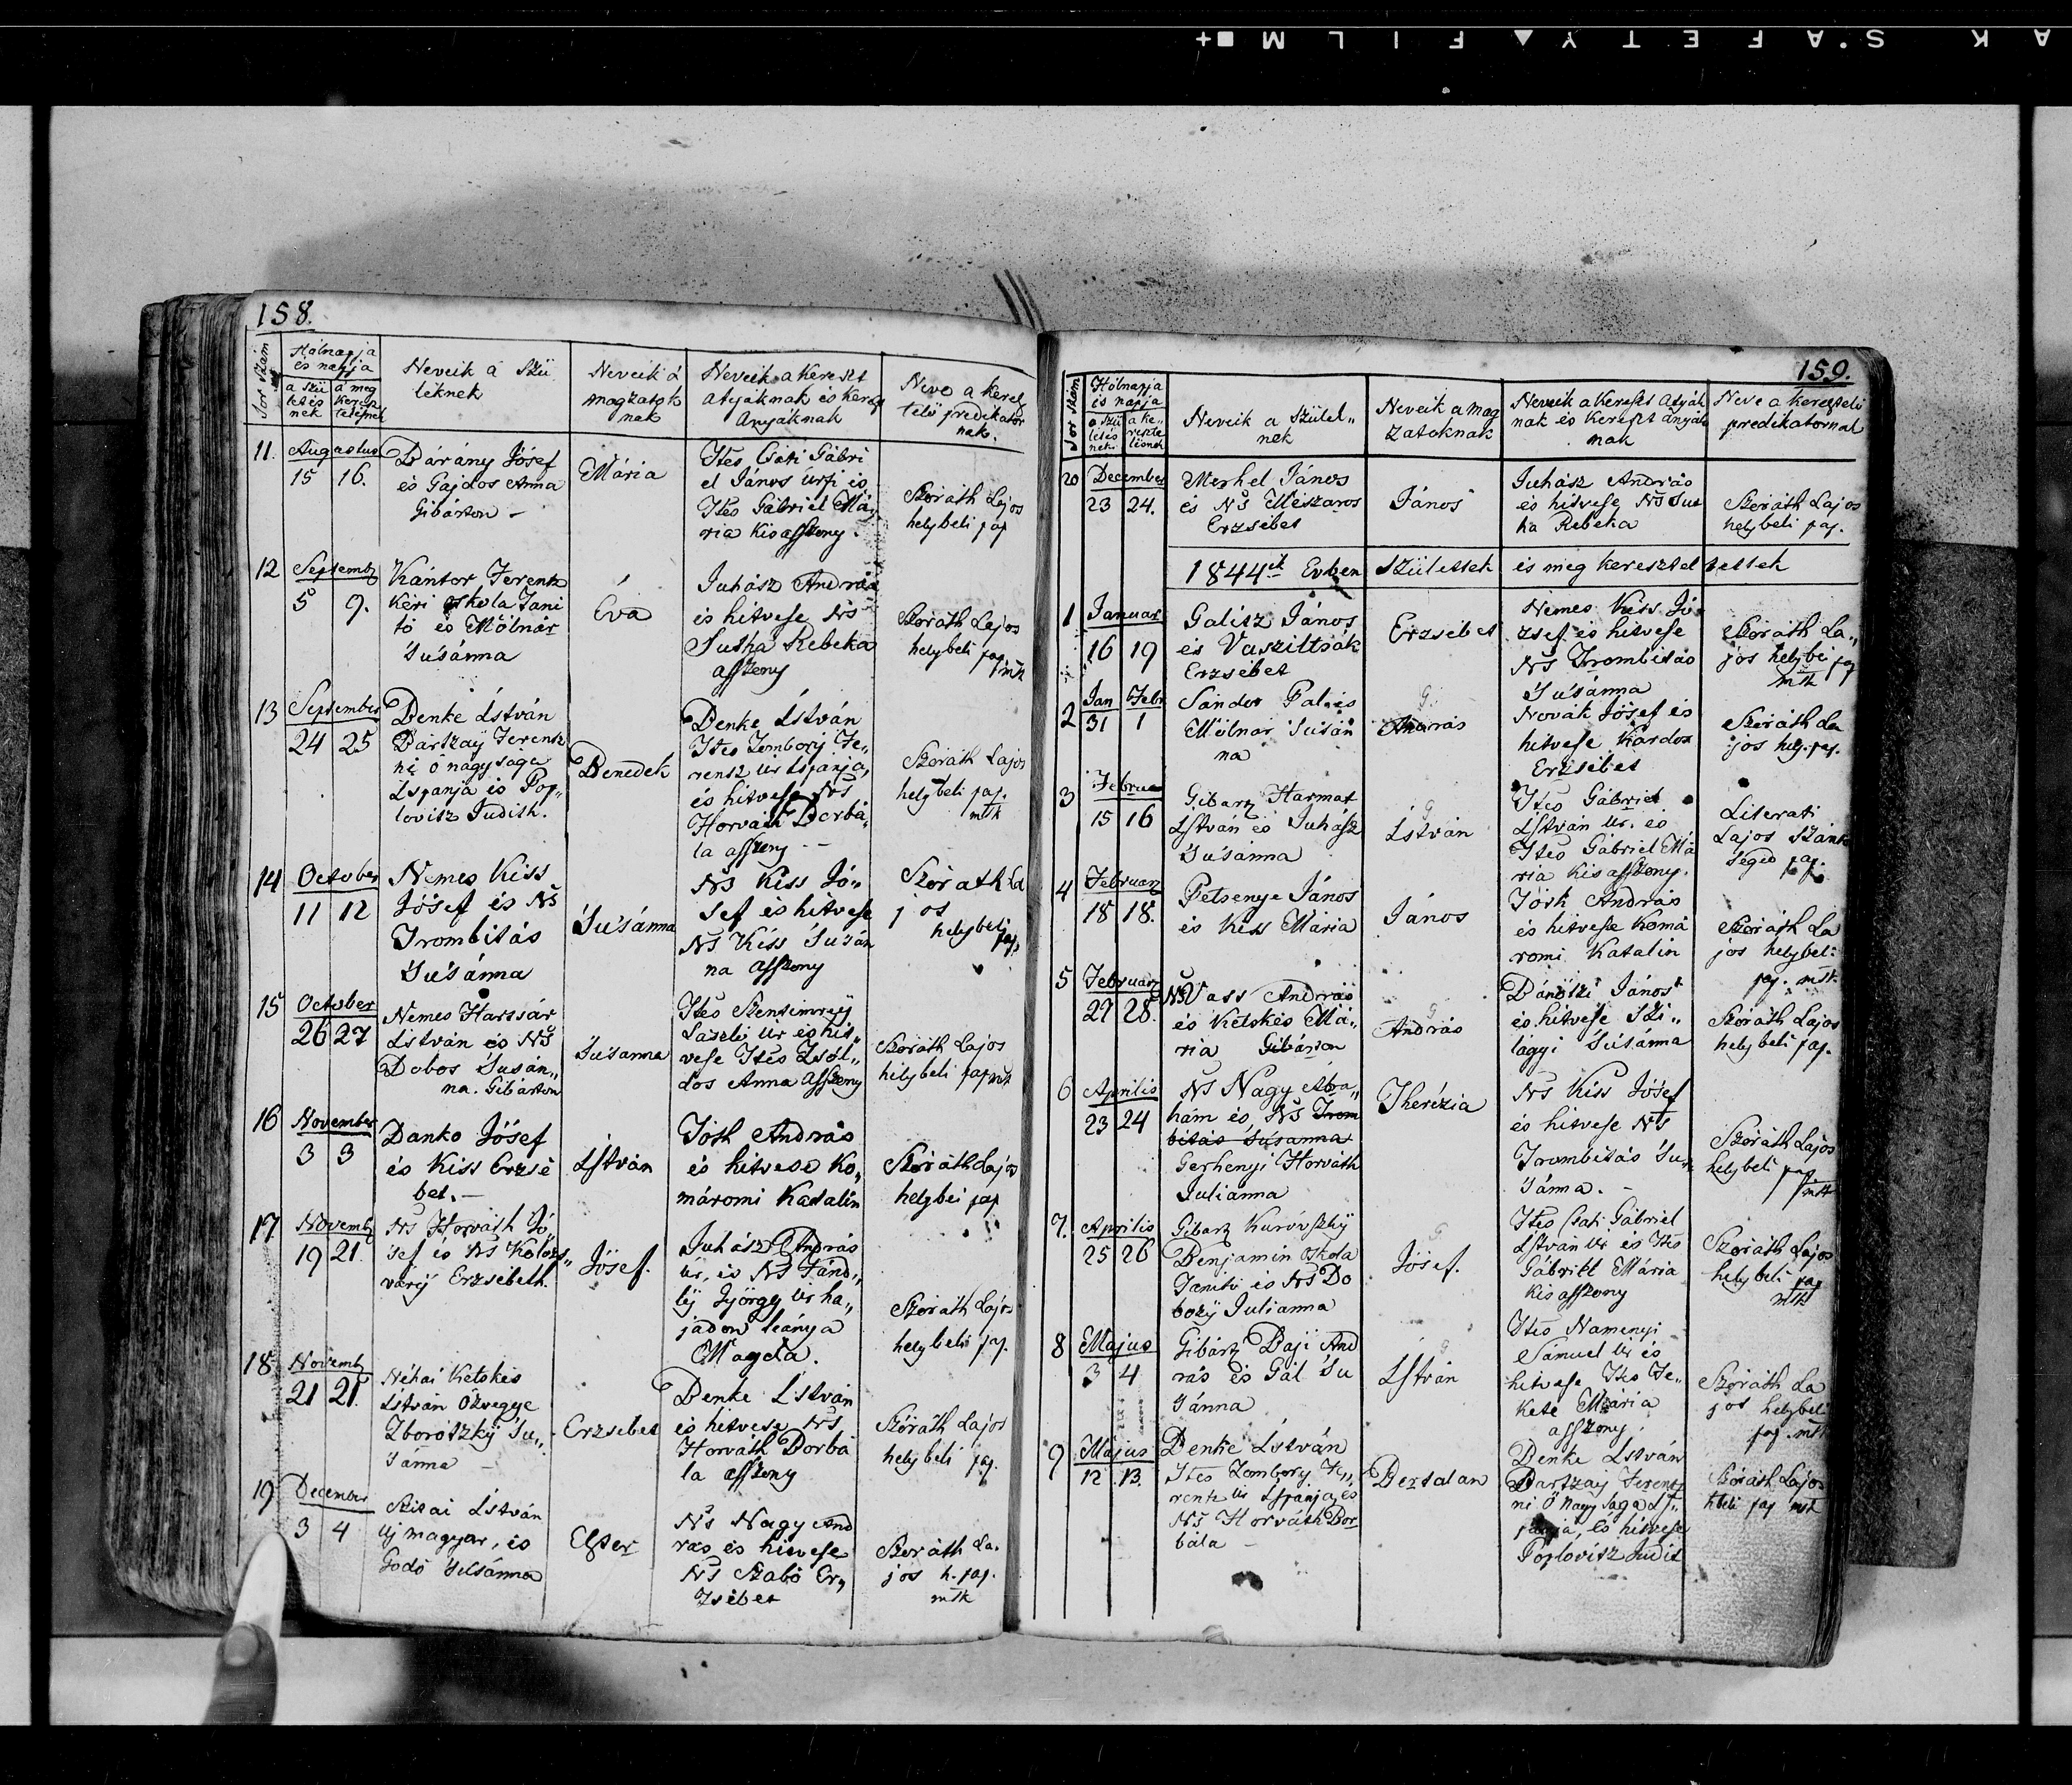 158.
Sor szám
Hólnapja
és napja
a szü
letés
nek
a meg
keresz
telésnek
Neveik a Szü
léknek
Neveik a
magzatok
nak
Neveik a Kereszt
atyáknak és keresz
Anyáknak
Neve a keresz
telő predikátor
nak.
11.
Augustus
15 16.
Bárány Jósef
és Gajdos Anna
Gibárton –
Mária
Ités Csáti Gábri
el János úrfi és
Ités Gábriel Má
ria Kisasszony.
Szoráth Lajos
helybeli pap
12
Septemb
5 9.
Kántor Ferentz
kéri oskola Tani
tó és Mólnár
Susánna
Éva
Juhász András
és hitvese Ns
Sutka Rebeka
asszony
Szoráth Lajos
helybeli pap
mtk
13
September
24 25
Benke István
Bártzay Ferentz
né ő nagysága
Ispánja és Pop„
lovitz Judith.
Benedek
Benke István
Ités Zombory Fe„
rensz Úr Ispánja,
és hitvese Ns
Horváth Borbá„
la asszony –
Szoráth Lajos
helybeli pap.
mtk
14
October
11 12
Nemes Kiss
Jósef és Ns
Trombitás
Susánna
Susánna
Ns Kiss Jó„
sef és hitvese
Ns Kiss Susán
na asszony
Szoráth La
jos
helybeli
pap.
15
October
26 27
Nemes Harsár
István és Ns
Dobos Susán„
na. Gibárton
Susanna
Ités Szentimrey
László Úr és hit„
vese Ités Zsól„
dos Anna asszony
Szoráth Lajos
helybeli pap mtk
16
November
3 3
Danko Jósef
és Kiss Erzsé
bet. –
István
Tóth András
és hitvese Ko„
máromi Katalin
Szoráth Lajos
helybei pap
17
Novemb
19 21.
Ns Horváth Jó
sef és Ns Kolozs„
váry Erzsébeth.
Jósef.
Juhász András
úr, és Ns
György Úr ha„
jadon leánya
Magda.
Szoráth Lajos
helybeli pap.
18
Novemb
21 21.
Néhai Ketskés
István özvegye
Zboroszky Su„
sánna –
Erzsebet
Benke István
és hitvese Ns
Horváth Borbá
la asszony
Szoráth Lajos
helybeli pap.
19
December
3 4
Szitai István
új magyar, és
Godó Susánna
Eszter
Ns Nagy And
rás és hitvese
Ns Szabó Er„
zsébet
Szoráth La.
jos h. pap.
mtk
159.
Sor szám
Hólnapja
és napja
a szü
letés
nek
a ke„
reszte
lésnek
Neveik a Szülei„
nek
Neveik a mag
zatoknak
Neveik a Kereszt atyák
nak és Kereszt anyák
nak
Neve a keresztelő
predikátornak
20
December
23 24.
Merhel János
és Ns Mészaros
Erzsébet
János
Juhász András
és hitvese Ns Sut
ka Rebeka
Szoráth Lajos
helybeli pap.
1844ik Évben születtek és meg kereszteltettek
1
Januar
16 19
Galisz János
és Vasziltsák
Erzsébet
Erzsébet
Nemes Kiss Jó
zsef és hitvese
Ns Trombitás
Susánna
Szoráth La„
jos helybei pap
mtk
2
Jan Febr
31 1
Sándor Pal és
Mólnár Susán
na
G.
András
Novák Jósef és
hitvese Kardos
Erzsébet
Szoráth La
jos helyb. pap.
3
Februa
15 16
Gibart Harmat
István és Juhász
Susánna
G
István
Ités Gábriel
István Ur. és
Ités Gábriel Má
ria Kisasszony.
Literati
Lajos Szánt
pap.
4
Februar
18 18.
Petsenye János
és Kiss Mária
János
Tóth András
és hitvese Komá
romi Katalin
Szoráth La
jos helybeli
pap. mtk
5
Februar
27 28.
Ns Vass András
és Ketskés Má„
ria Gibárton
G
András
Bánótzi János
és hitvese Szi„
lágyi Susánna
Szoráth Lajos
helybeli pap.
6
Aprilis
23 24
Ns Nagy Ábra„
hám és Ns Trom
bitás Susanna
Gerhenyi Horváth
Julianna
Therézia
Ns Kiss Jósef
és hitvese Ns
Trombitás Su„
sánna. –
Szoráth Lajos
helybeli pap
mtk
7.
Aprilis
25 26
Gibart Kuróvszky
Benjamin Oskola
Tanító és Ns Do
bozy Julianna
G
Jósef.
Ités Csáti Gábriel
István Ur és Ités
Gábriel Mária
Kisasszony
Szoráth Lajos
helybeli pap
mtk
8
Majus
3 4
Gibart Baji And
rás és Gál Su
sánna
G
István
Ités Namenyi
Sámuel Ur és
hitvese Ités Fe„
kete Mária
asszony.
Szoráth La
jos helybeli
pap. mtk
9
Május
12 13.
Benke István
Ités Zombory Fe„
rentz Ur Ispánja, és
Ns Horváth Bor
bála –
Bertalan
Benke István
Bartzay Ferentz
né Ő Nagysága Is„
pánja, és hitvese
Poplovitz Judit
Szoráth Lajos
hbeli pap mtk